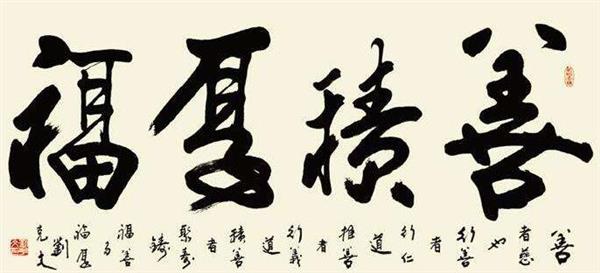 善積厚福
善
者慈
也
行善
者
行仁
道
推善
者
行義
道
積善
者
聚
鑄
福善
福厚
劉
克文